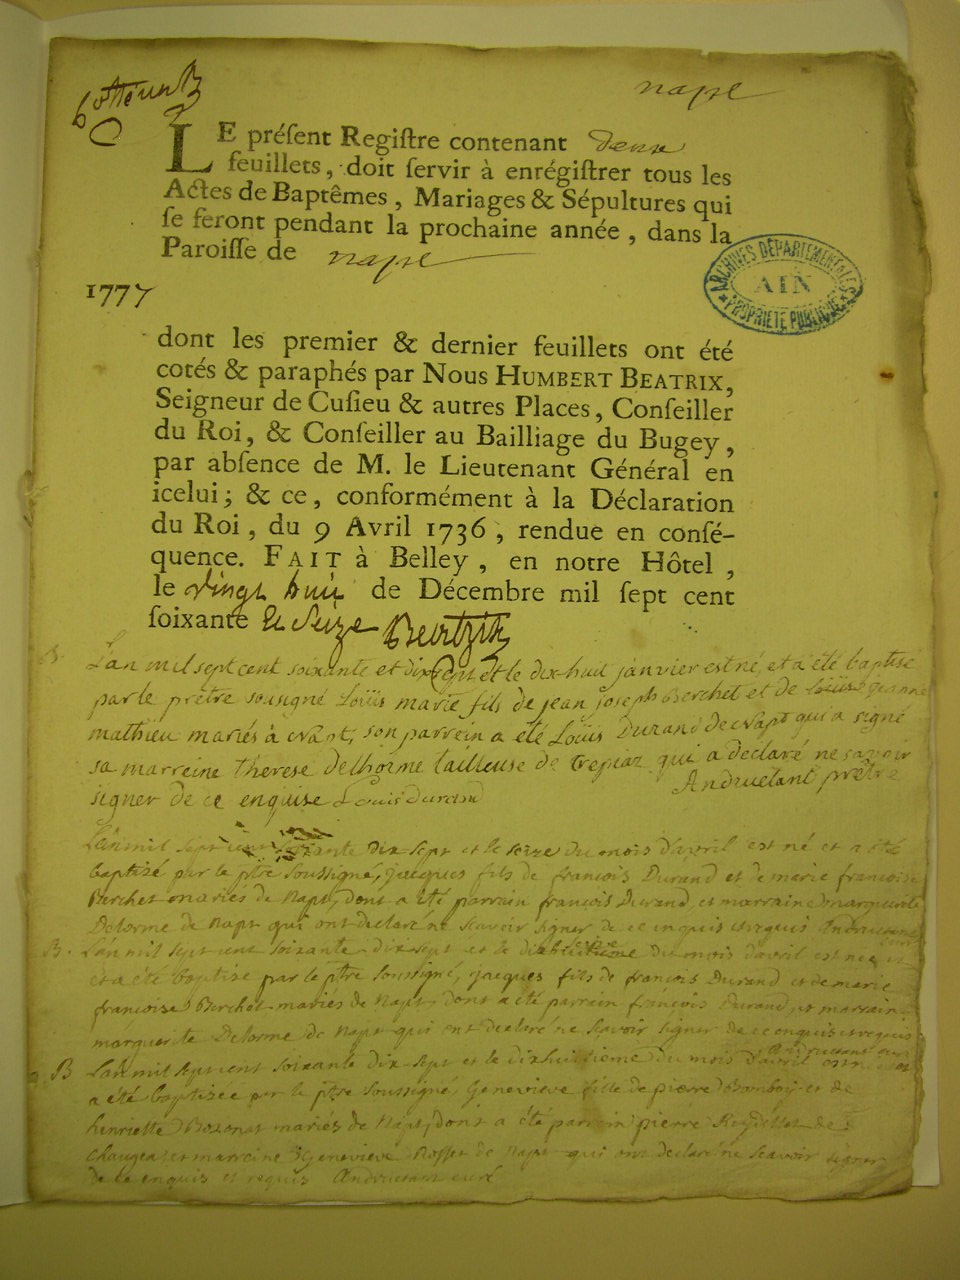 napt
LE préſent Regiſtre contenant deux
feuillets, doit ſervir à enrégiſtrer tous les
Actes de Baptêmes, Mariages & Sépultures qui
ſe feront pendant la prochaine année, dans la
Paroiſſe de napt
ARCHIVES DÉPARTEMENTALES
AIN
PROPRIÉTÉ PUBLIQUE
1777
dont les premier & dernier feuillets ont été
cotés & paraphés par Nous HUMBERT BEATRIX,
Seigneur de Cuſieu & autres Places, Conſeiller
du Roi, & Conſeiller au Bailliage du Bugey,
par abſence de M. le Lieutenant Général en
icelui; & ce, conformément à la Déclaration
du Roi, du 9 Avril 1736, rendue en conſé-
quence. FAIT à Belley, en notre Hôtel,
le vingt huit de Décembre mil ſept cent
ſoixante et Seize Beatrix
B. L'an mil sept cent soixante et dix sept et le dix huit janvier est né, et a été baptisé
par le prêtre sousigné Loüis marie fils de jean joseph Berchet et de loüise jeanne
mathieu mariés à Napt, son parrein a été Loüis Durand de Napt qui a signé
sa marreine therese delhorme tailleuse de trepiaz qui a declaré ne savoir
signer de ce enquise Louis Durand Andruetant prêtre
L'an mil sept cent soixante dix sept et le seize du mois d'avril est né et a été
baptisé par le ptre soussigné, jacques fils de françois Durand et de marie françoise
Berchet mariés de Napt, dont a été parrain françois Durand, et marraine marguerite
Delorme de Napt qui ont declaré ne scavoir signer de ce enquis et requis Andruetant
curé
B. L'an mil sept cent soixante dix sept et le dixhuitieme du mois d'avril est né
et a été baptisé par le ptre soussigné, jacques fils de françois Durand et de marie
françoise Berchet mariés de Napt, dont a été parrein françois Durand, et marraine
marguerite Delorme de Napt qui ont declaré ne scavoir signer de ce enquis et requis
Andruetant curé
B L'an mil sept cent soixante dix sept et le dixhuitieme du mois d'avril est née et
a été baptisée par le ptre soussigné Genevieve fille de pierre Bomboy et de
henriette Bozonat mariés de Napt, dont a été parrein pierre Reydellet de
Chougea et marreine Genevieve Rosset de Napt qui ont declaré ne scavoir signer
de ce enquis et requis Andruetant curé